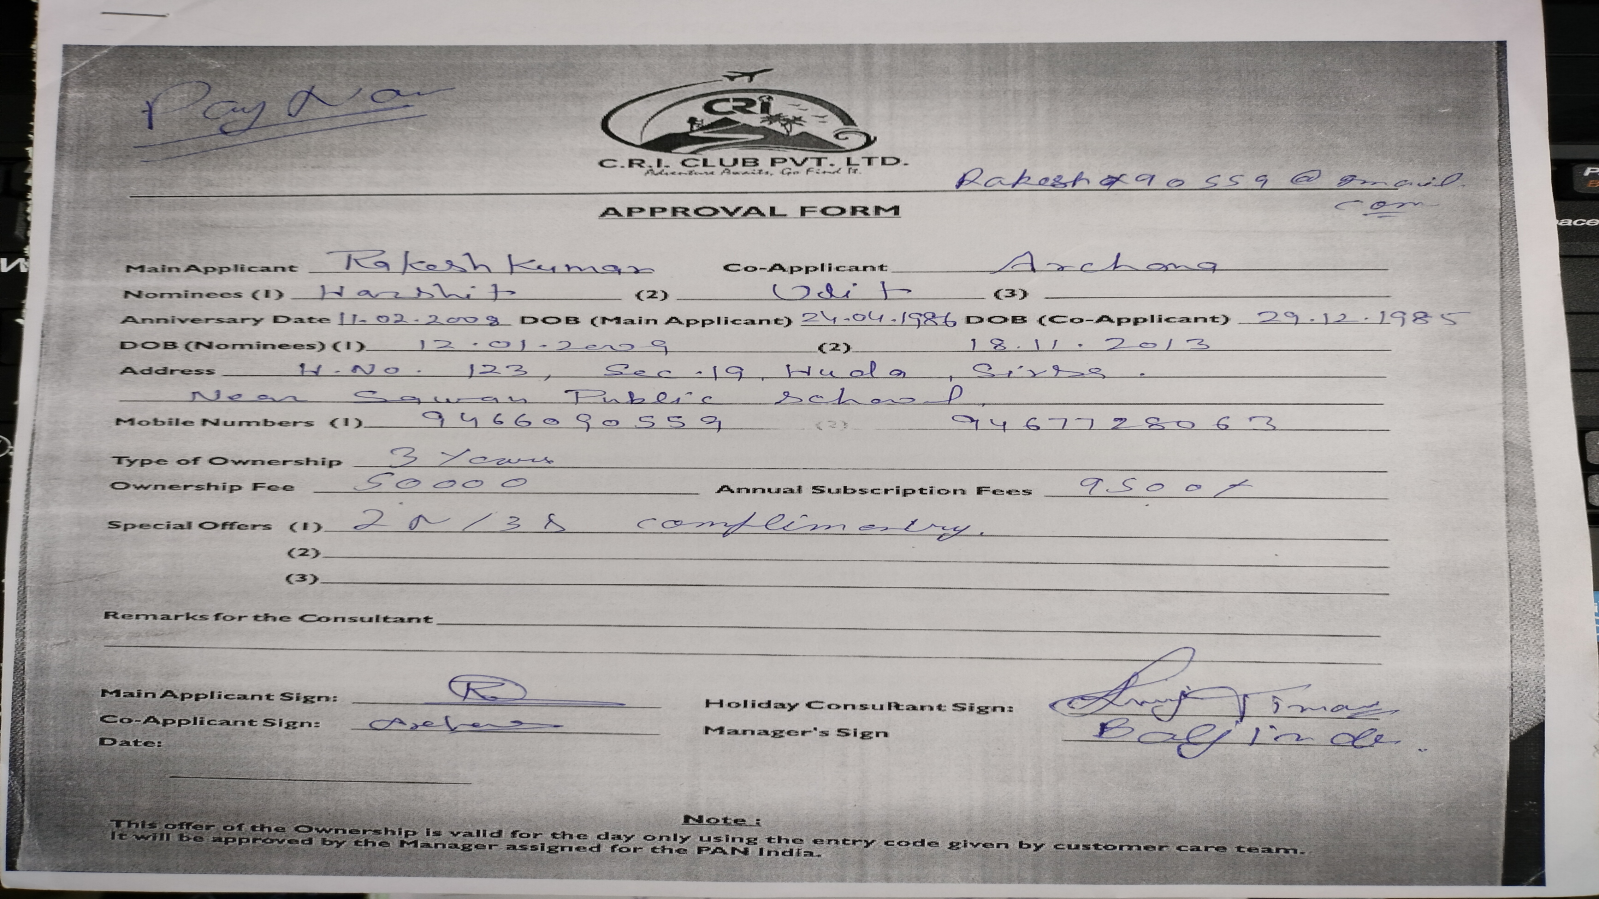 Pay Now
CRi
C.R.I. CLUB PVT. LTD.
Adventure Awaits, Go Find It.
@ gmail.
com
APPROVAL FORM
Main Applicant Rakesh Kumar Co-Applicant Archana
Nominees (1) Harshit (2) Udit (3)
Anniversary Date 11.02.2008 DOB (Main Applicant) 24.04.1986 DOB (Co-Applicant) 29.12.1985
DOB (Nominees) (1) 12.01.2009 (2) 18.11.2013
Address H.No. 123, Sec-19, Huda, Sirsa.
Near Sawan Public School,
Mobile Numbers (1) 9466090559 (2) 9467728063
Type of Ownership 3 Years
Ownership Fee 50000 Annual Subscription Fees 9500/
Special Offers (1) 2N/3D complimentry.
(2)
(3)
Remarks for the Consultant
Main Applicant Sign: R Holiday Consultant Sign:
Co-Applicant Sign: Manager's Sign
Date:
Note :
This offer of the Ownership is valid for the day only using the entry code given by customer care team.
It will be approved by the Manager assigned for the PAN India.